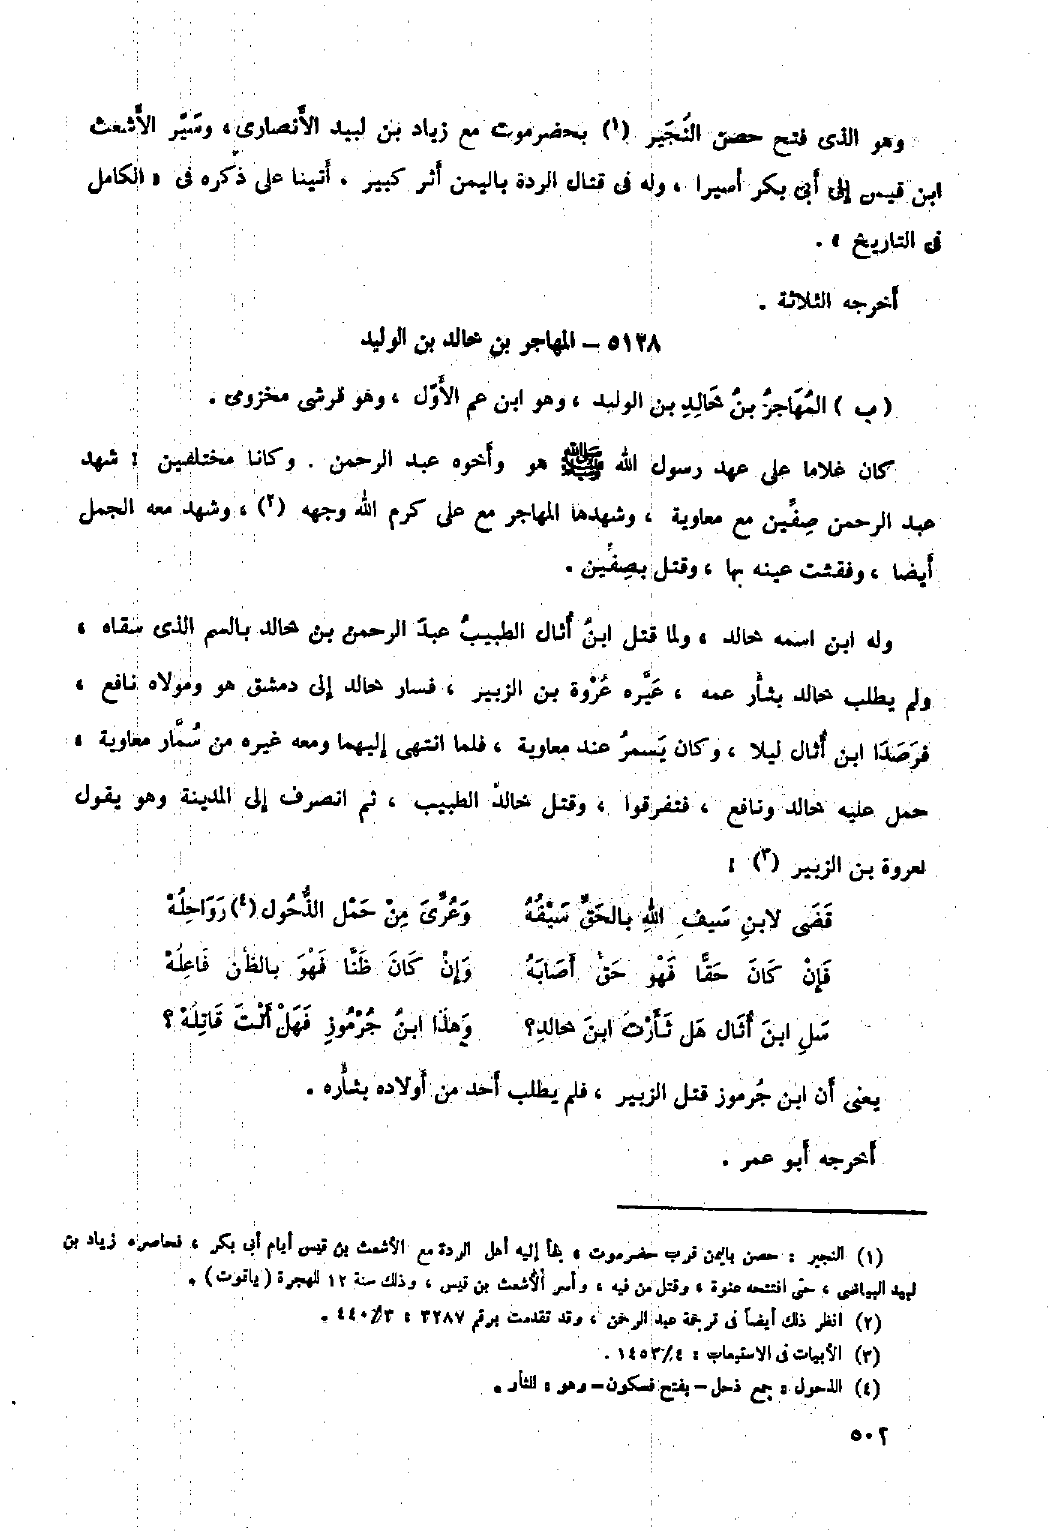 وهو الذى فتح حصن النُجَير (١) بحضرموت مع زياد بن لبيد الأنصارى ، وسَيَّر الأَشعث
ابن قيس إلى أَبى بكر أَسيرا ، وله فى قتال الردة باليمن أَثر كبير . أَتينا على ذكره فى « الكامل
فى التاريخ » .
أَخرجه الثلاثة .
٥١٢٨ – المهاجر بن خالد بن الوليد
( ب ) المُهَاجرُ بنُ خَالِدِ بن الوليد ، وهو ابن عم الأَوّل ، وهو قرشى مخزومى .
كان غلاما على عهد رسول الله ﷺ هو وأَخوه عبد الرحمن . وكانا مختلفين : شهد
عبد الرحمن صِفِّين مع معاوية ، وشهدها المهاجر مع على كرم الله وجهه (٢) ، وشهد معه الجمل
أَيضا ، وفقئت عينه بها ، وقتل بصِفِّين .
وله ابن اسمه خالد ، ولما قتل ابنُ أُثال الطبيبُ عبدَ الرحمن بن خالد بالسم الذى سقاه ،
ولم يطلب خالد بثأر عمه ، عَيَّره عُرْوة بن الزبير ، فسار خالد إلى دمشق هو ومولاه نافع ،
فرَصَدَا ابن أُثال ليلا ، وكان يَسمرُ عند معاوية ، فلما انتهى إليهما ومعه غيره من سُمَّار معاوية ،
حمل عليه خالد ونافع ، فتفرقوا ، وقتل خالدٌ الطبيب ، ثم انصرف إلى المدينة وهو يقول
لعروة بن الزبير (٣) :
قَضَى لابنِ سَيفِ اللهِ بالحَقِّ سَيْفُهُ وَعُرِّىَ مِنْ حَمْلِ الذُّحُول(٤) رَوَاحِلُهْ
فَإِنْ كَانَ حَقًّا فَهْو حَقٌ أَصَابَهُ وَإِنْ كَانَ ظَنًّا فَهْوَ بالظَّن فَاعِلُهْ
سَلِ ابنَ أُثَال هَل ثَأَرْتُ ابنَ خالدِ؟ وَهذَا ابنُ جُرْمُوزٍ فَهَلْ أَنْتَ قَاتِلُهْ ؟
يعنى أَن ابن جُرموز قتل الزبير ، فلم يطلب أَحد من أَولاده بثأْره .
أَخرجه أَبو عمر .
(١) النجير : حصن باليمن قرب حضرموت ، لجأ إليه أهل الردة مع الأشعث بن قيس أيام أبى بكر ، فحاصره زياد بن
لبيد البياضى ، حتى افتتحه عنوة ، وقتل من فيه ، وأسر الأشعث بن قيس ، وذلك سنة ١٢ للهجرة ( ياقوت ) .
(٢) انظر ذلك أيضاً فى ترجمة عبد الرحمن ، وقد تقدمت برقم ٣٢٨٧ : ٤٤٠/٣ .
(٣) الأبيات فى الاستيعاب : ١٤٥٣/٤ .
(٤) الذحول : جمع ذحل – بفتح فسكون – وهو : الثأر .
٥٠٢